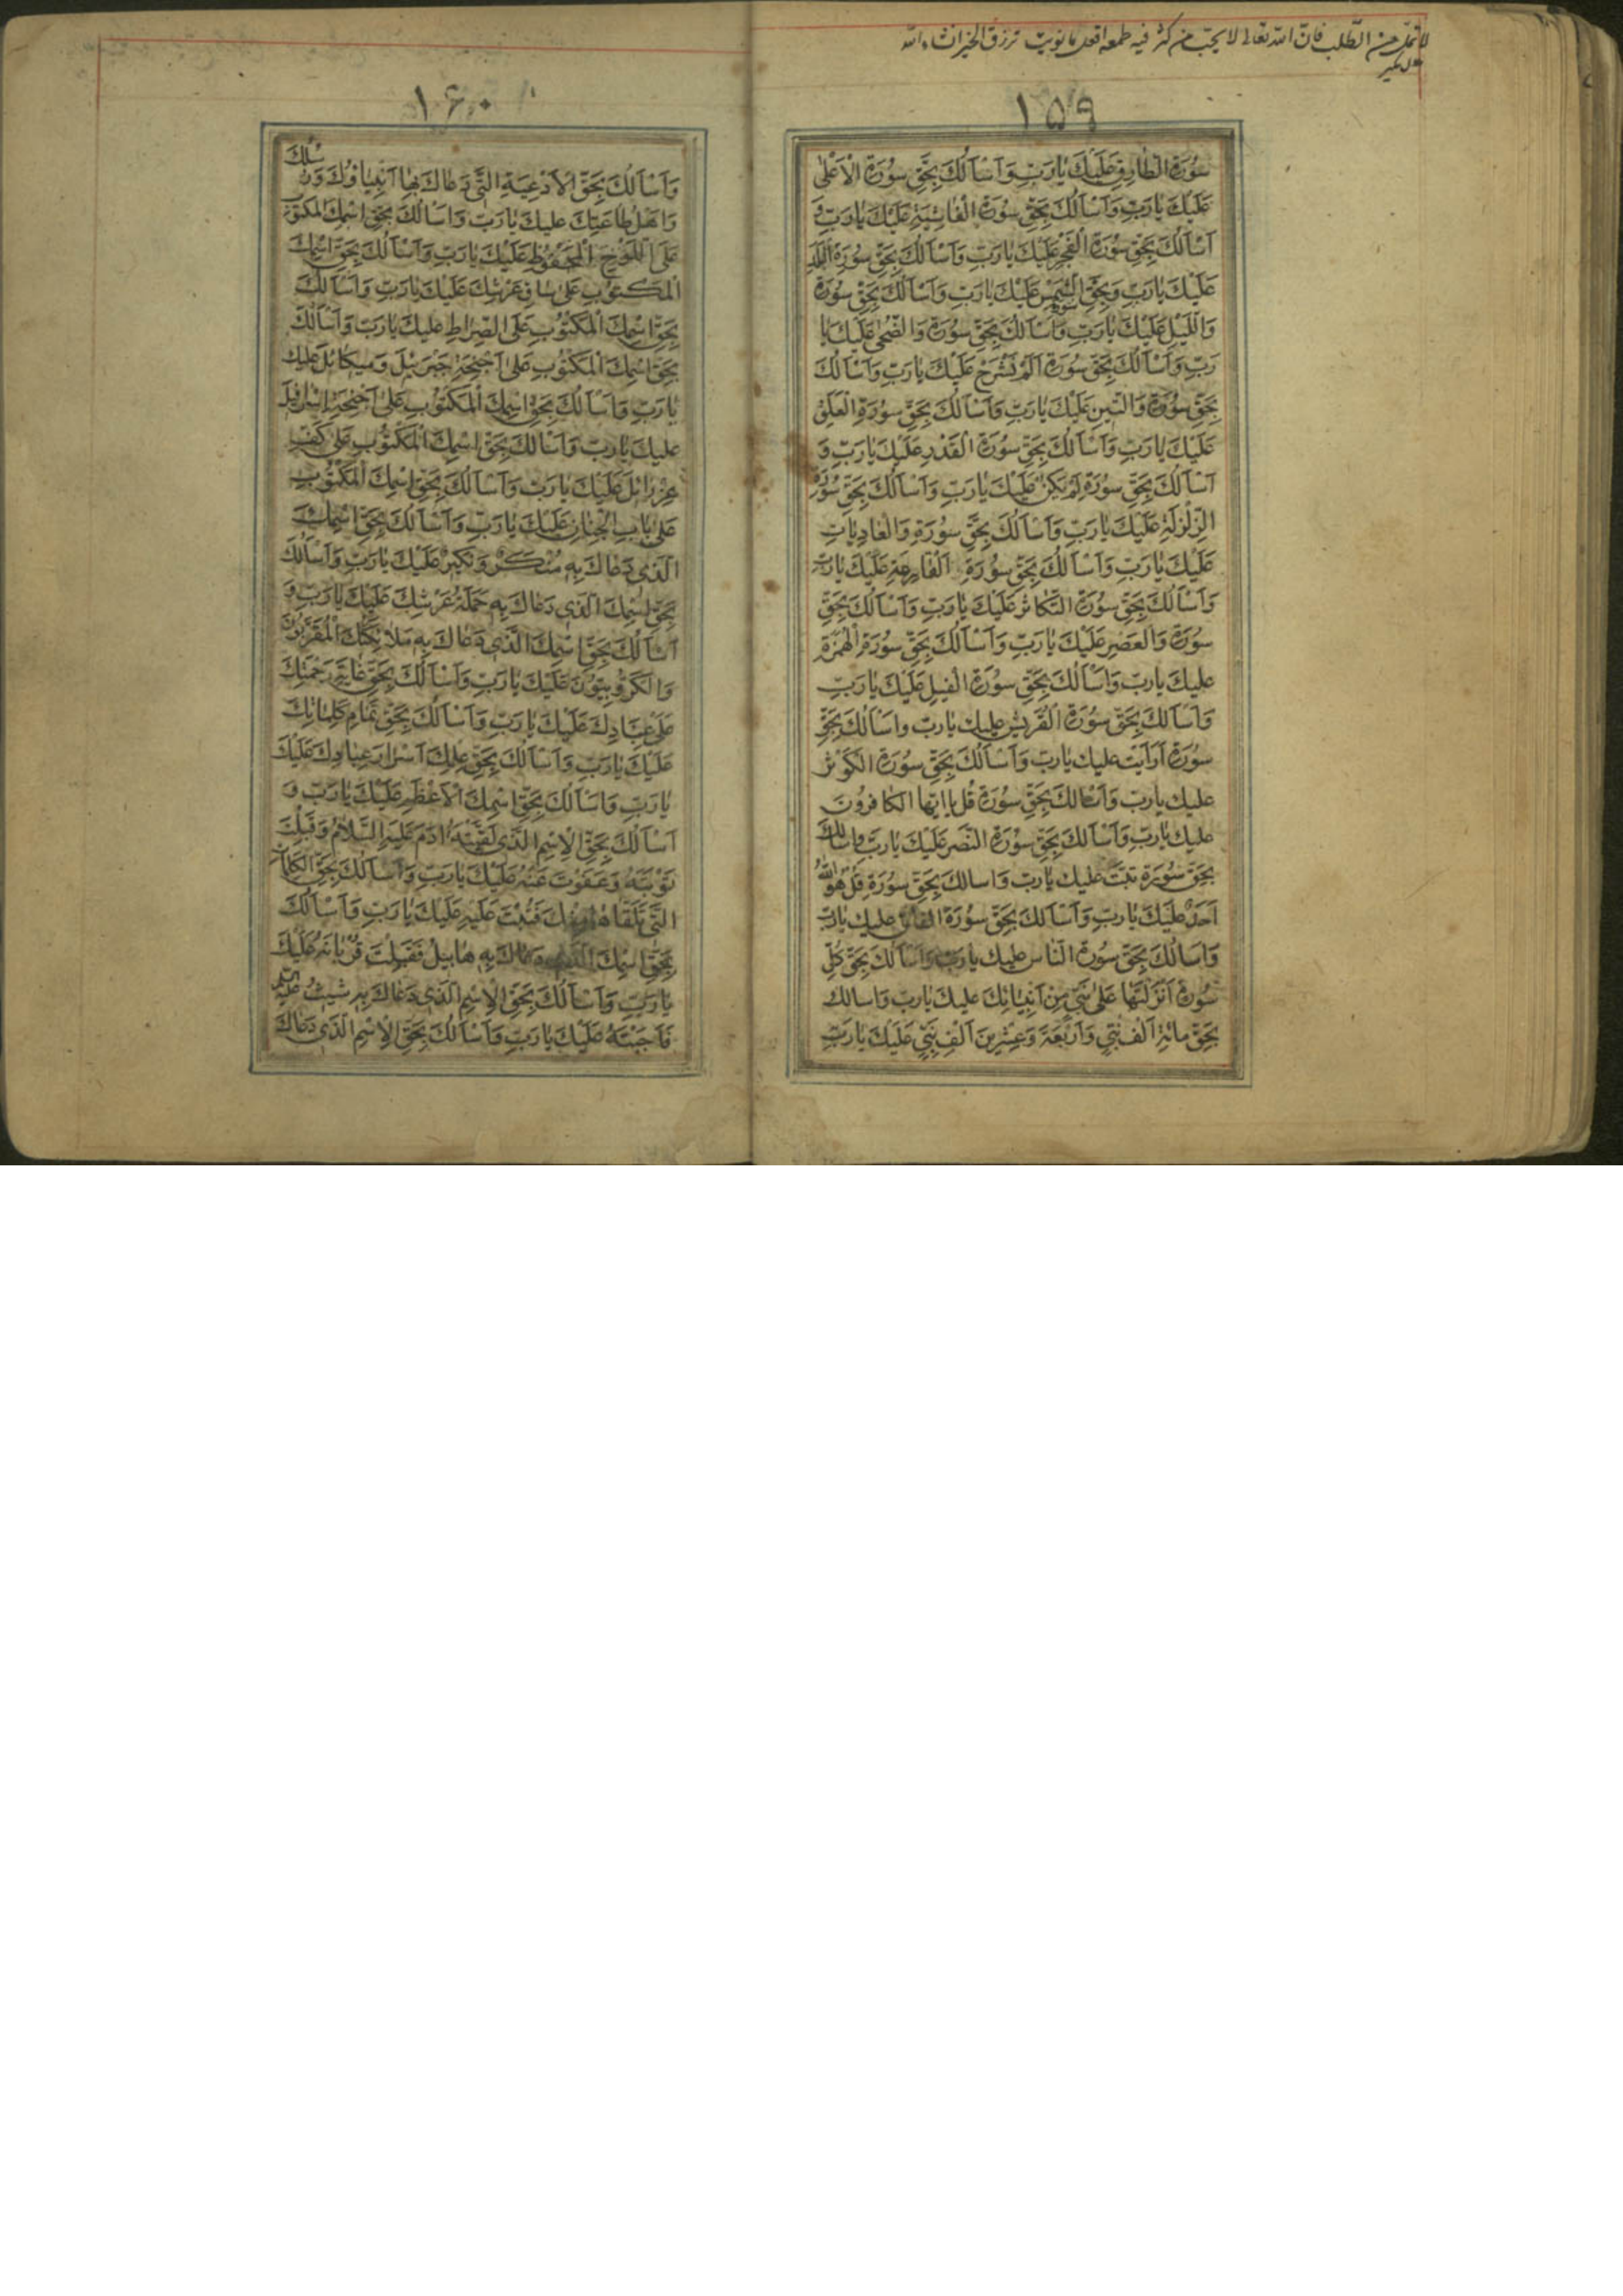 لا تملّ من الطّلب فانّ الله تعالی لا یحبّ من کثر فیه طمعه افعل ما نویت ترزق الخیر انشاء الله
۱۵۹
سُورَةِ الطّارِقِ عَلَيْكَ يٰا رَبِّ وَاَسْاَلُكَ بِحَقِّ سُورَةِ الْاَعْلىٰ
عَلَيْكَ يٰا رَبِّ وَاَسْاَلُكَ بِحَقِّ سُورَةِ الْغٰاشِيَةِ عَلَيْكَ يٰا رَبِّ وَ
اَسْاَلُكَ بِحَقِّ سُورَةِ الْفَجْرِ عَلَيْكَ يٰا رَبِّ وَاَسْاَلُكَ بِحَقِّ سُورَةِ الْبَلَدِ
عَلَيْكَ يٰا رَبِّ وَبِحَقِّ سورة الشَّمْسِ عَلَيْكَ يٰا رَبِّ وَاَسْاَلُكَ بِحَقِّ سُورَةِ
وَاللَّيْلِ عَلَيْكَ يٰا رَبِّ وَاَسْاَلُكَ بِحَقِّ سُورَةِ وَالضُّحىٰ عَلَيْكَ يٰا
رَبِّ وَاَسْاَلُكَ بِحَقِّ سُورَةِ اَلَمْ نَشْرَحْ عَلَيْكَ يٰا رَبِّ وَاَسْاَلُكَ
بِحَقِّ سُورَةِ وَالتّينِ عَلَيْكَ يٰا رَبِّ وَاَسْاَلُكَ بِحَقِّ سُورَةِ الْعَلَقِ
عَلَيْكَ يٰا رَبِّ وَاَسْاَلُكَ بِحَقِّ سُورَةِ الْقَدْرِ عَلَيْكَ يٰا رَبِّ وَ
اَسْاَلُكَ بِحَقِّ سُورَةِ لَمْ يَكُنْ عَلَيْكَ يٰا رَبِّ وَاَسْاَلُكَ بِحَقِّ سُورَةِ
الزِّلْزَلَةِ عَلَيْكَ يٰا رَبِّ وَاَسْاَلُكَ بِحَقِّ سُورَةِ وَالْعٰادِيٰاتِ
عَلَيْكَ يٰا رَبِّ وَاَسْاَلُكَ بِحَقِّ سُورَةِ الْقٰارِعَةِ عَلَيْكَ يٰا رَبِّ
وَاَسْاَلُكَ بِحَقِّ سُورَةِ التَّكٰاثُرِ عَلَيْكَ يٰا رَبِّ وَاَسْاَلُكَ بِحَقِّ
سُورَةِ وَالْعَصْرِ عَلَيْكَ يٰا رَبِّ وَاَسْاَلُكَ بِحَقِّ سُورَةِ الْهُمَزَةِ
عليكَ يا ربِّ وَاَسْاَلُكَ بِحَقِّ سُورَةِ الْفيلِ عَلَيْكَ يٰا رَبِّ
وَاَسْاَلُكَ بِحَقِّ سُورَةِ الْقُرَيْشِ عليك يا ربّ واسْاَلُكَ بِحَقِّ
سُورَةِ اَرَاَيْتَ عليك يا ربّ وَاَسْاَلُكَ بِحَقِّ سُورَةِ الكَوْثَرِ
عليك يا ربّ وَاَسْاَلُكَ بِحَقِّ سُورَةِ قُلْ يٰا اَيُّهَا الكٰافِرُونَ
عليك يا ربّ وَاَسْاَلُكَ بِحَقِّ سُورَةِ النَّصْرِ عَلَيْكَ يا رَبِّ وَاسالُكَ
بِحَقِّ سُورَةِ تَبَّتْ عليك يا ربّ وَاسالك بِحَقِّ سُورَةِ قُلْ هُوَ اللّٰهُ
اَحَدٌ عَلَيْكَ يا ربِّ وَاَسْاَلُكَ بِحَقِّ سُورَةِ الفلق عليك يا ربّ
وَاَسْاَلُكَ بِحَقِّ سُورَةِ النّاس عليك يا ربّ وَاَسْاَلُكَ بِحَقِّ كُلِّ
سُورَةٍ اَنْزَلْتَهٰا عَلىٰ نَبِيٍّ مِنْ اَنْبِيٰائِكَ عليك يا ربّ وَاسالك
بِحَقِّ مِائَةِ اَلْفِ نَبِيٍّ وَاَرْبَعَةٍ وَعِشْرينَ اَلْفِ نَبِيٍّ عَلَيْكَ يا رَبِّ
۱۶۰
وَاَسْاَلُكَ بِحَقِّ الْاَدْعِيَةِ الَّتي دَعٰاكَ بِهٰا اَنْبِيٰاؤُكَ وَرُسُلُكَ
وَاَهْلُ طٰاعَتِكَ عليكَ يٰا رَبِّ وَاَسْاَلُكَ بِحَقِّ اسْمِكَ المكتوب
عَلَى اللَّوْحِ الْمَحْفُوظِ عَلَيْكَ يٰا رَبِّ وَاَسْاَلُكَ بِحَقِّ اسْمِكَ
الْمَكْتُوبِ عَلىٰ سٰاقِ عَرْشِكَ عَلَيْكَ يٰا رَبِّ وَاَسْاَلُكَ
بِحَقِّ اسْمِكَ الْمَكْتُوبِ عَلَى الصِّرٰاطِ عليكَ يٰا رَبِّ وَاَسْاَلُكَ
بِحَقِّ اسْمِكَ الْمَكْتُوبِ عَلىٰ اَجْنِحَةِ جَبْرَئيلَ وَميكٰائيلَ عَليك
يٰا رَبِّ وَاَسْاَلُكَ بِحَقِّ اسْمِكَ الْمَكْتُوبِ عَلىٰ اَجْنِحَةِ اِسْرٰافيلَ
عليكَ يٰا ربّ وَاَسْاَلُكَ بِحَقِّ اسْمِكَ الْمَكْتُوبِ عَلىٰ كَفِّ
عِزْرٰائيلَ عَلَيْكَ يٰا رَبِّ وَاَسْاَلُكَ بِحَقِّ اسْمِكَ الْمَكْتُوبِ
عَلىٰ بٰابِ الْجِنٰانِ عَلَيْكَ يٰا رَبِّ وَاَسْاَلُكَ بِحَقِّ اسْمِكَ
الَّذي دَعٰاكَ بِهِ مُنْكَرٌ وَنَكيرٌ عَلَيْكَ يٰا رَبِّ وَاَسْاَلُكَ
بِحَقِّ اسْمِكَ الَّذي دَعٰاكَ بِهِ حَمَلَةُ عَرْشِكَ عَلَيْكَ يٰا رَبِّ وَ
اَسْاَلُكَ بِحَقِّ اسْمِكَ الَّذي دَعٰاكَ بِهِ مَلاٰئِكَتُكَ الْمُقَرَّبُونَ
وَالْكَرُّوبِيّوُنَ عَلَيْكَ يٰا رَبِّ وَاَسْاَلُكَ بِحَقِّ غٰايَةِ رَحْمَتِكَ
عَلىٰ عِبٰادِكَ عَلَيْكَ يٰا رَبِّ وَاَسْاَلُكَ بِحَقِّ تَمٰامِ كَلِمٰاتِكَ
عَلَيْكَ يٰا رَبِّ وَاَسْاَلُكَ بِحَقِّ عِلْمِكَ اَسْرٰارَ عِبٰادِكَ عَلَيْكَ
يٰا رَبِّ وَاَسْاَلُكَ بِحَقِّ اسْمِكَ الْاَعْظَمِ عَلَيْكَ يٰا رَبِّ وَ
اَسْاَلُكَ بِحَقِّ الْاِسْمِ الَّذي لَقَّنْتَهُ اٰدَمَ عَلَيْهِ السَّلاٰمُ وَقَبِلْتَ
تَوْبَتَهُ وَعَفَوْتَ عَنْهُ عَلَيْكَ يٰا رَبِّ وَاَسْاَلُكَ بِحَقِّ الْكَلِمٰاتِ
الَّتي تَلَقّٰاهٰا مِنْكَ فَتُبْتَ عَلَيْهِ عَلَيْكَ يٰا رَبِّ وَاَسْاَلُكَ
بِحَقِّ اسْمِكَ الَّذي دَعٰاكَ بِهِ هٰابيلُ فَقَبِلْتَ قُرْبٰانَهُ عَلَيْكَ
يٰا رَبِّ وَاَسْاَلُكَ بِحَقِّ الْاِسْمِ الَّذي دَعٰاكَ بِهِ شيثُ عَلَيْهِ السّلام
فَاَجَبْتَهُ عَلَيْكَ يٰا رَبِّ وَاَسْاَلُكَ بِحَقِّ الْاِسْمِ الَّذي دَعٰاكَ